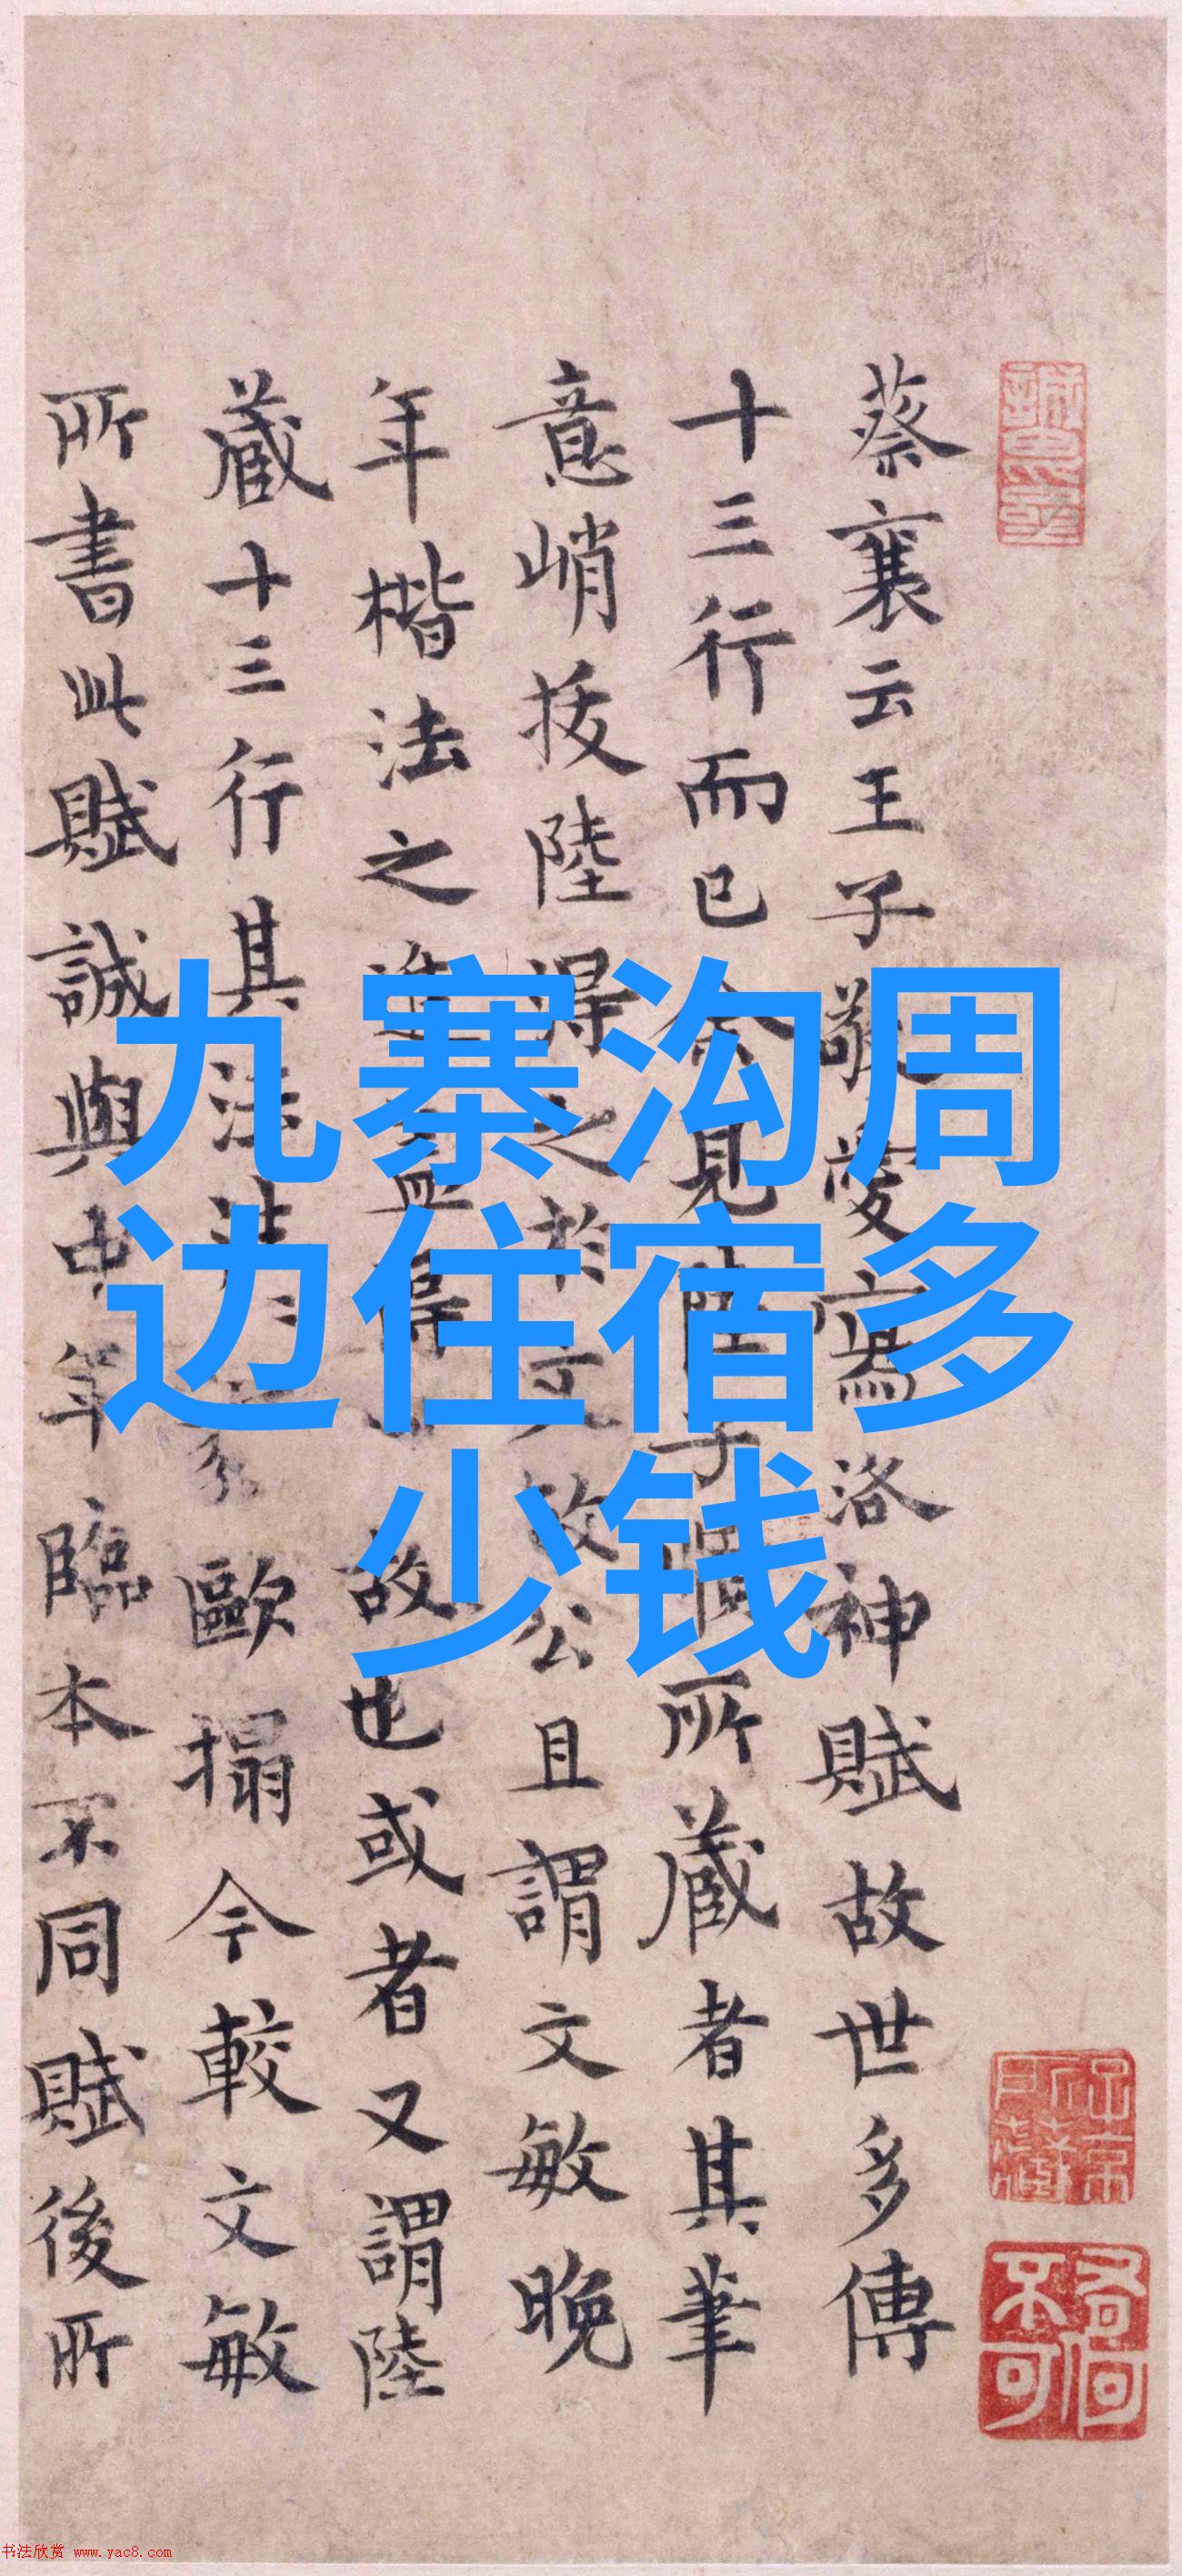 九寨沟周
边住宿多
少钱
蔡襄云王子敬愛寫洛神賦故世多傳
十三行而已余見陸子所藏者其筆
意峭拔陸得之於故公且謂文敏晚
年楷法之進益得故也或者又謂陸
藏十三行其法歐搨今較文敏
所書此賦誠與中年臨本不同賦後所
书法欣赏 www.yac8.com